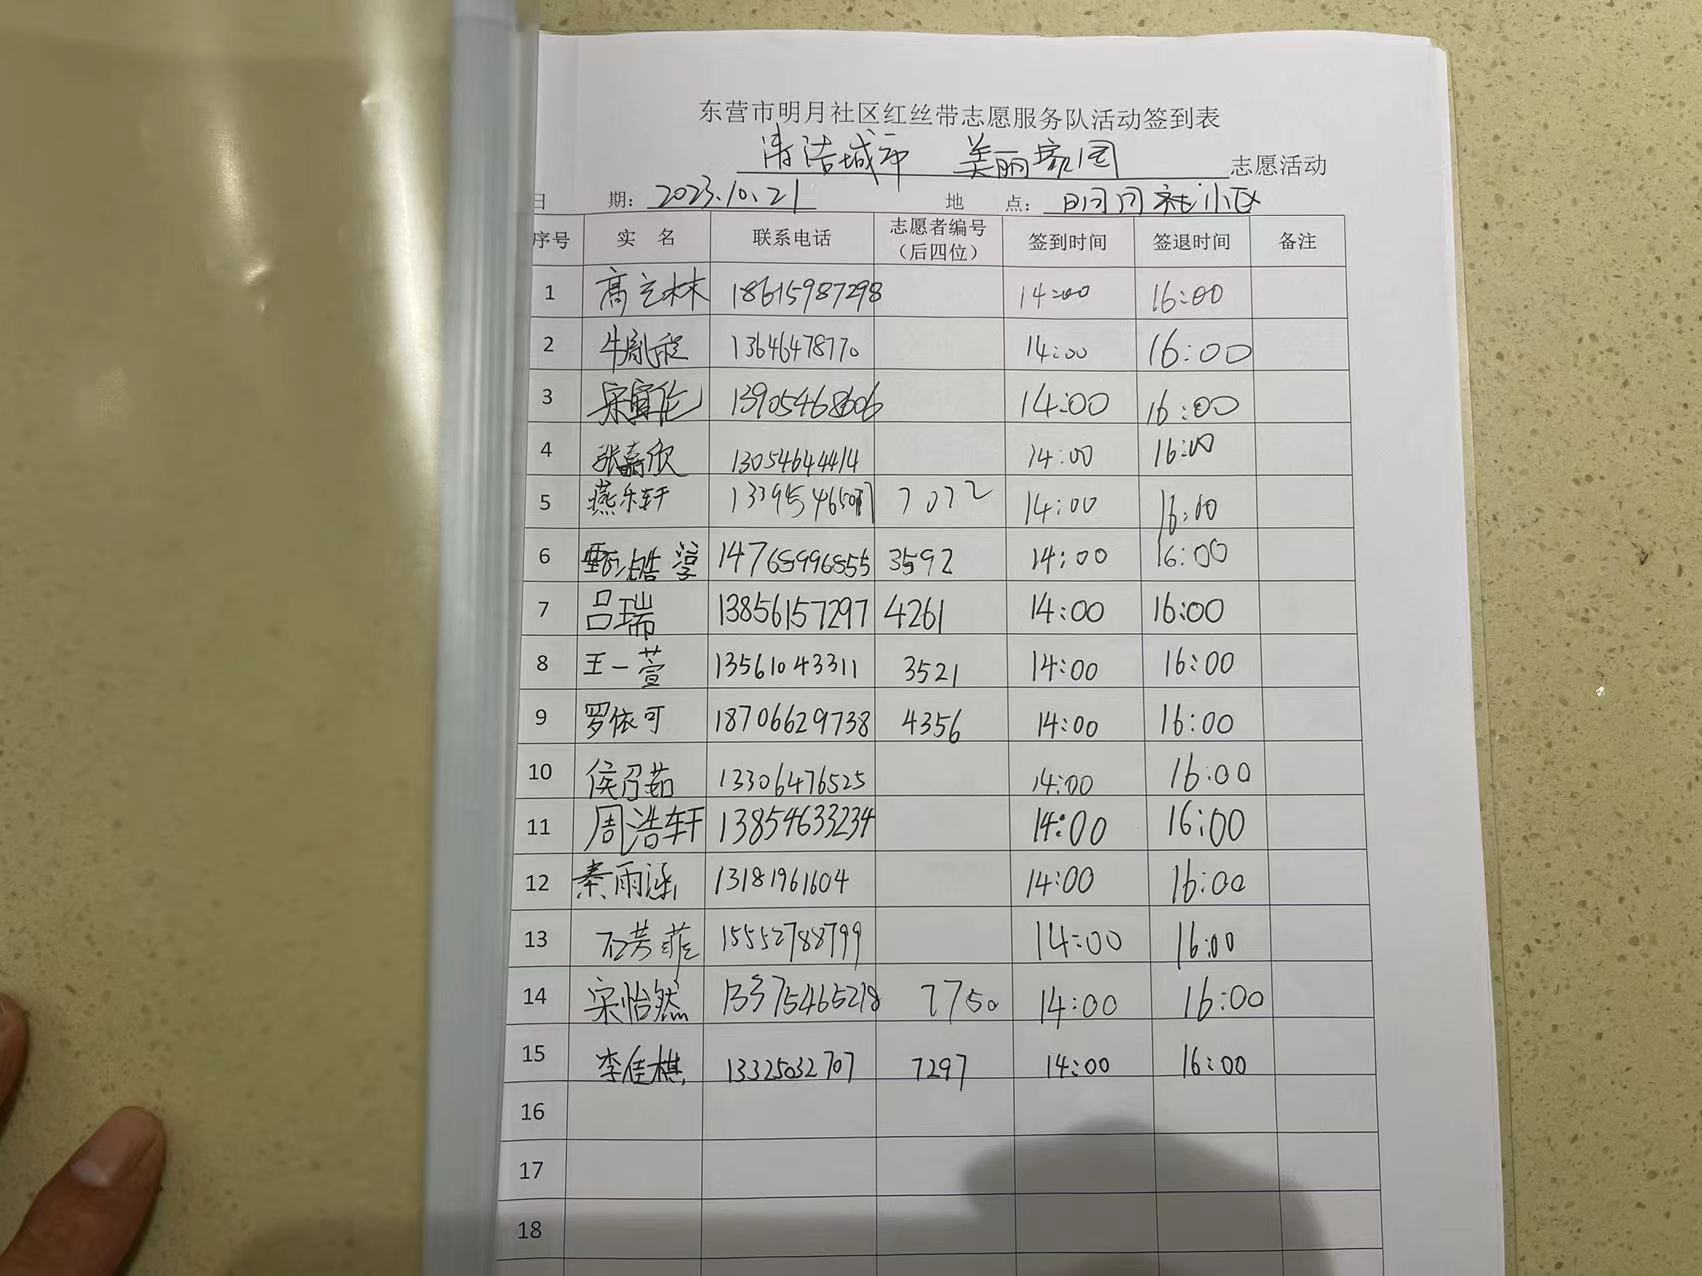 东营市明月社区红丝带志愿服务队活动签到表
清洁城市 美丽家园 志愿活动
日 期: 2023.10.21 地 点: 明月社小区
序号 实 名 联系电话 志愿者编号(后四位) 签到时间 签退时间 备注
1 高艺林 18615987298 14:00 16:00
2 牛胤欣 13646478770 14:00 16:00
3 宋寅伦 13905468606 14:00 16:00
4 张嘉欣 13054644414 14:00 16:00
5 燕乐轩 7072 14:00 16:00
6 甄浩淳 14765996855 3592 14:00 16:00
7 吕瑞 13856157297 4261 14:00 16:00
8 王一萱 13561043311 3521 14:00 16:00
9 罗依可 18706629738 4356 14:00 16:00
10 侯召茹 13306476525 14:00 16:00
11 周浩轩 13854633234 14:00 16:00
12 秦雨涵 13181961604 14:00 16:00
13 石芳菲 15552788799 14:00 16:00
14 宋怡然 13375465218 7750 14:00 16:00
15 李佳棋 13325032707 7297 14:00 16:00
16
17
18